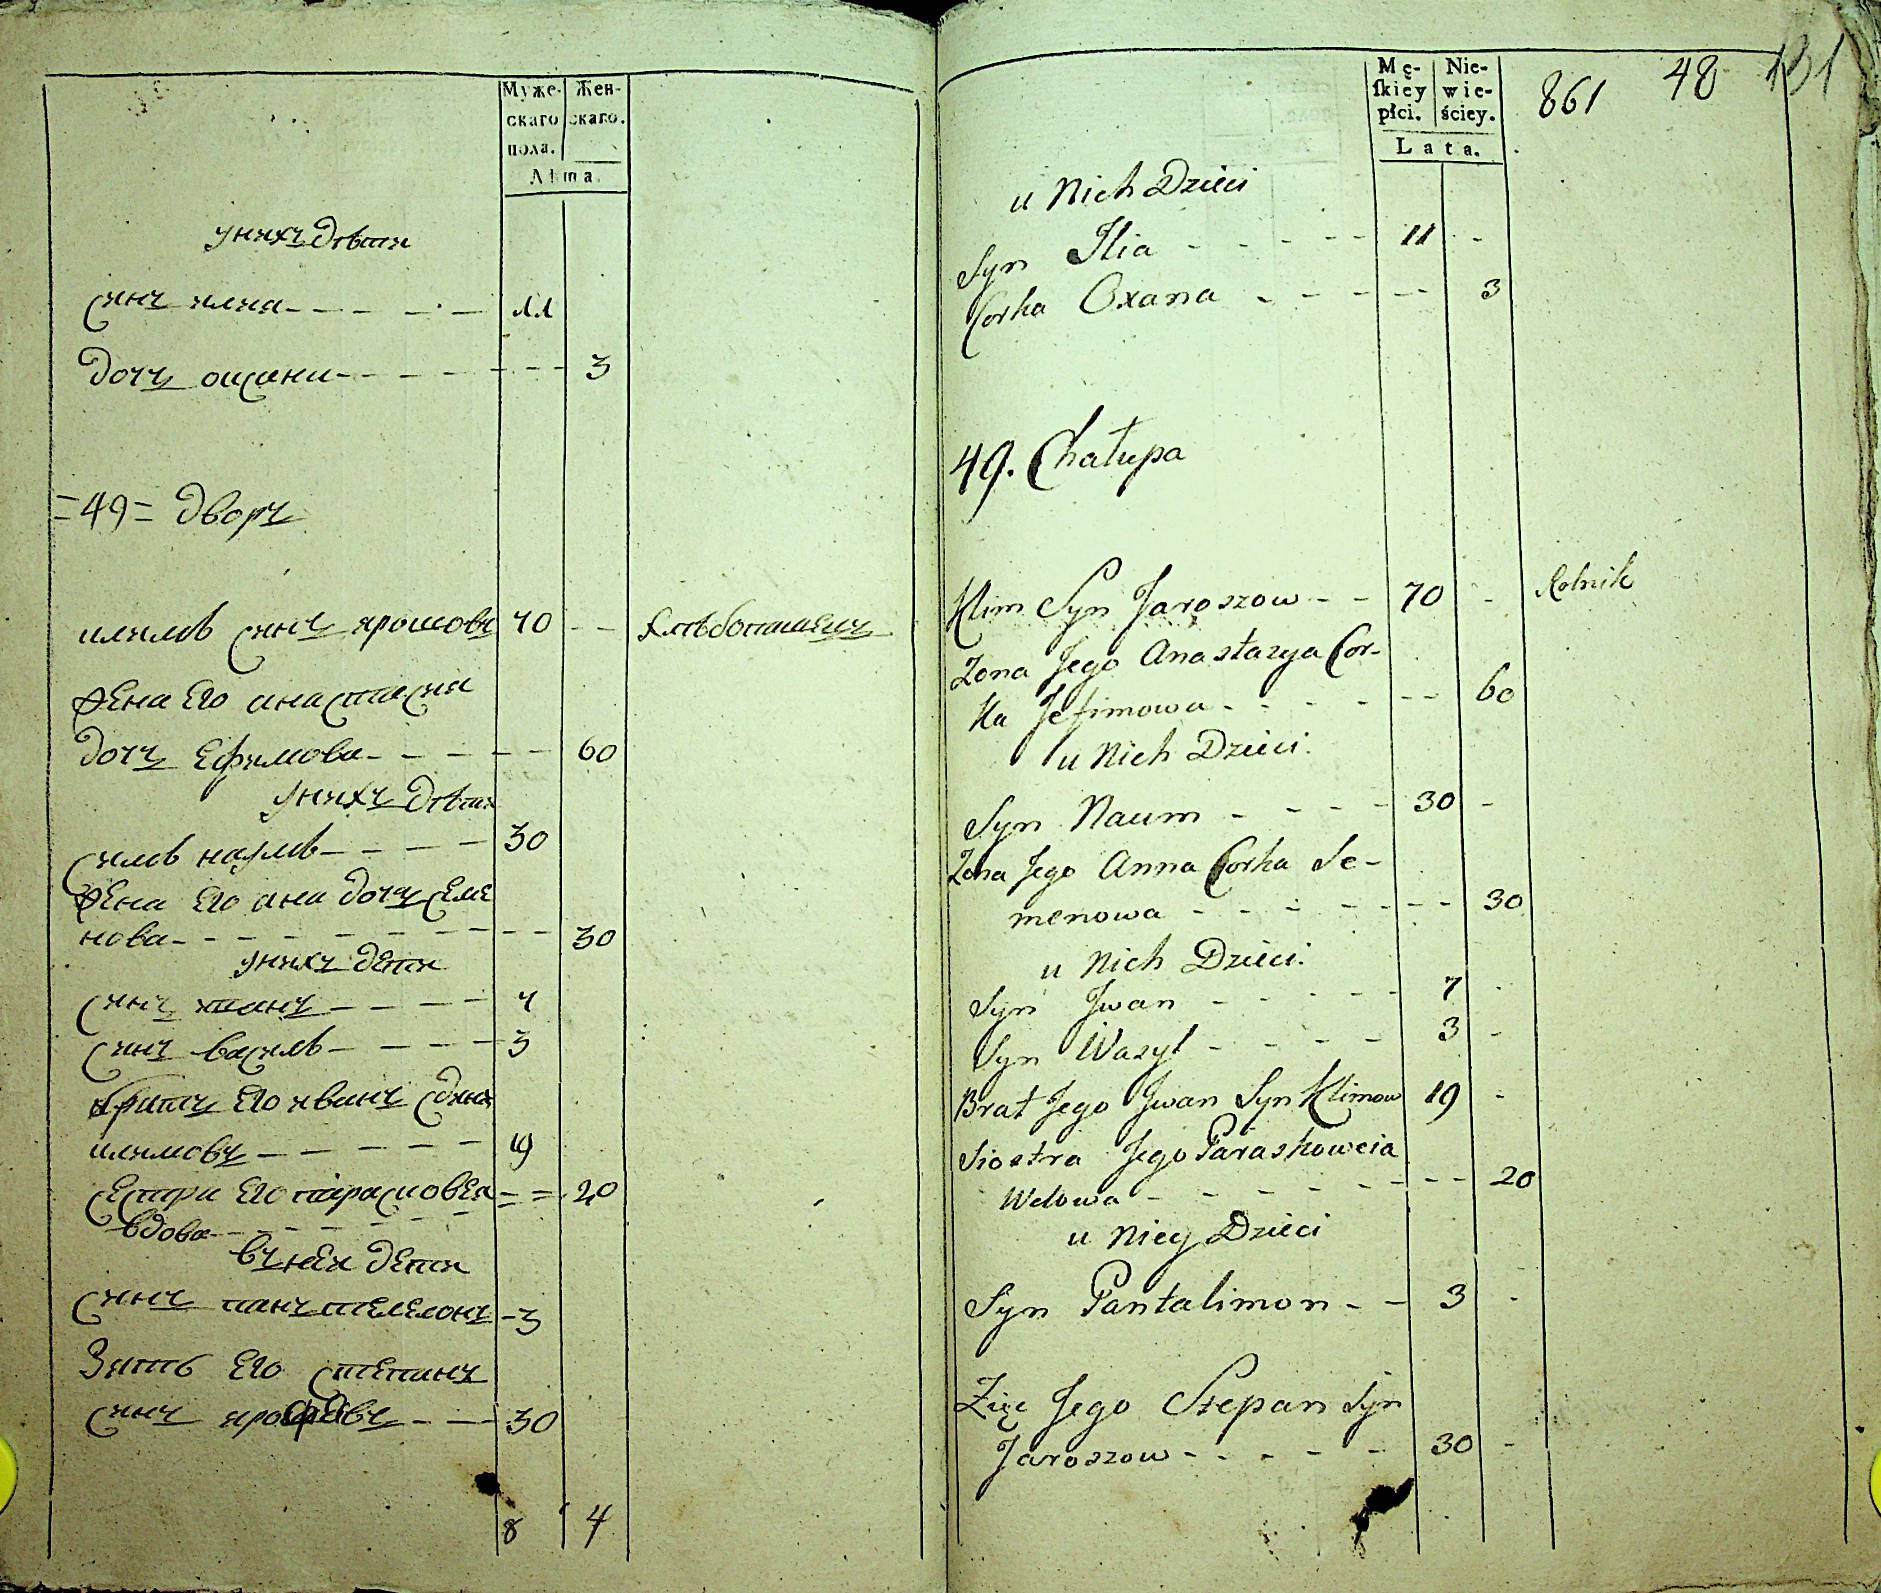 Муже-
скаго
пола.
Жен-
скаго.
Лѣта.
у нихъ дѣти
синъ илиа - - - - - 11
дочъ оксани - - - - - - - 3
=49= дворъ
климъ синъ ярошовъ 70 - - хлѣбопашецъ
жена его анастасиа
дочъ ефимова - - - - - 60
у нихъ дѣти
синъ наумъ - - - - 30
жена его ана дочъ семе
нова - - - - - - - - - 30
у нихъ дети
синъ иванъ - - - - 7
синъ василь - - - - 3
братъ его иванъ синъ
климовъ - - - - - 19
сестра его парасковеа = = 20
вдова - - - - - -
въ неи дети
синъ пантелемонъ - 3
Зять его степанъ
синъ ярошовъ - - 30
8 4
Mę-
ſkiey
płci.
Nie-
wie-
ściey.
Lata.
861 48 131
u Nich Dzieci
Syn Ilia - - - - - 11 - -
Corka Oxana - - - - - 3
49. Chałupa
Klim Syn Jaroszow - - 70 - Rolnik
Zona Jego Anastazya Cor-
ka Jefimowa - - - - - - 60
u Nich Dzieci.
Syn Naum - - - - 30 -
Zona Jego Anna Corka Se-
menowa - - - - - - - 30
u Nich Dzieci.
Syn Jwan - - - - - 7 -
Syn Wasyl - - - - 3 -
Brat Jego Jwan Syn Klimow 19 -
Siostra Jego Paraskoweia
Wdowa - - - - - - - - 20
u Niey Dzieci
Syn Pantalimon - - 3 -
Zięć Jego Stepan Syn
Jaroszow - - - - - 30 -